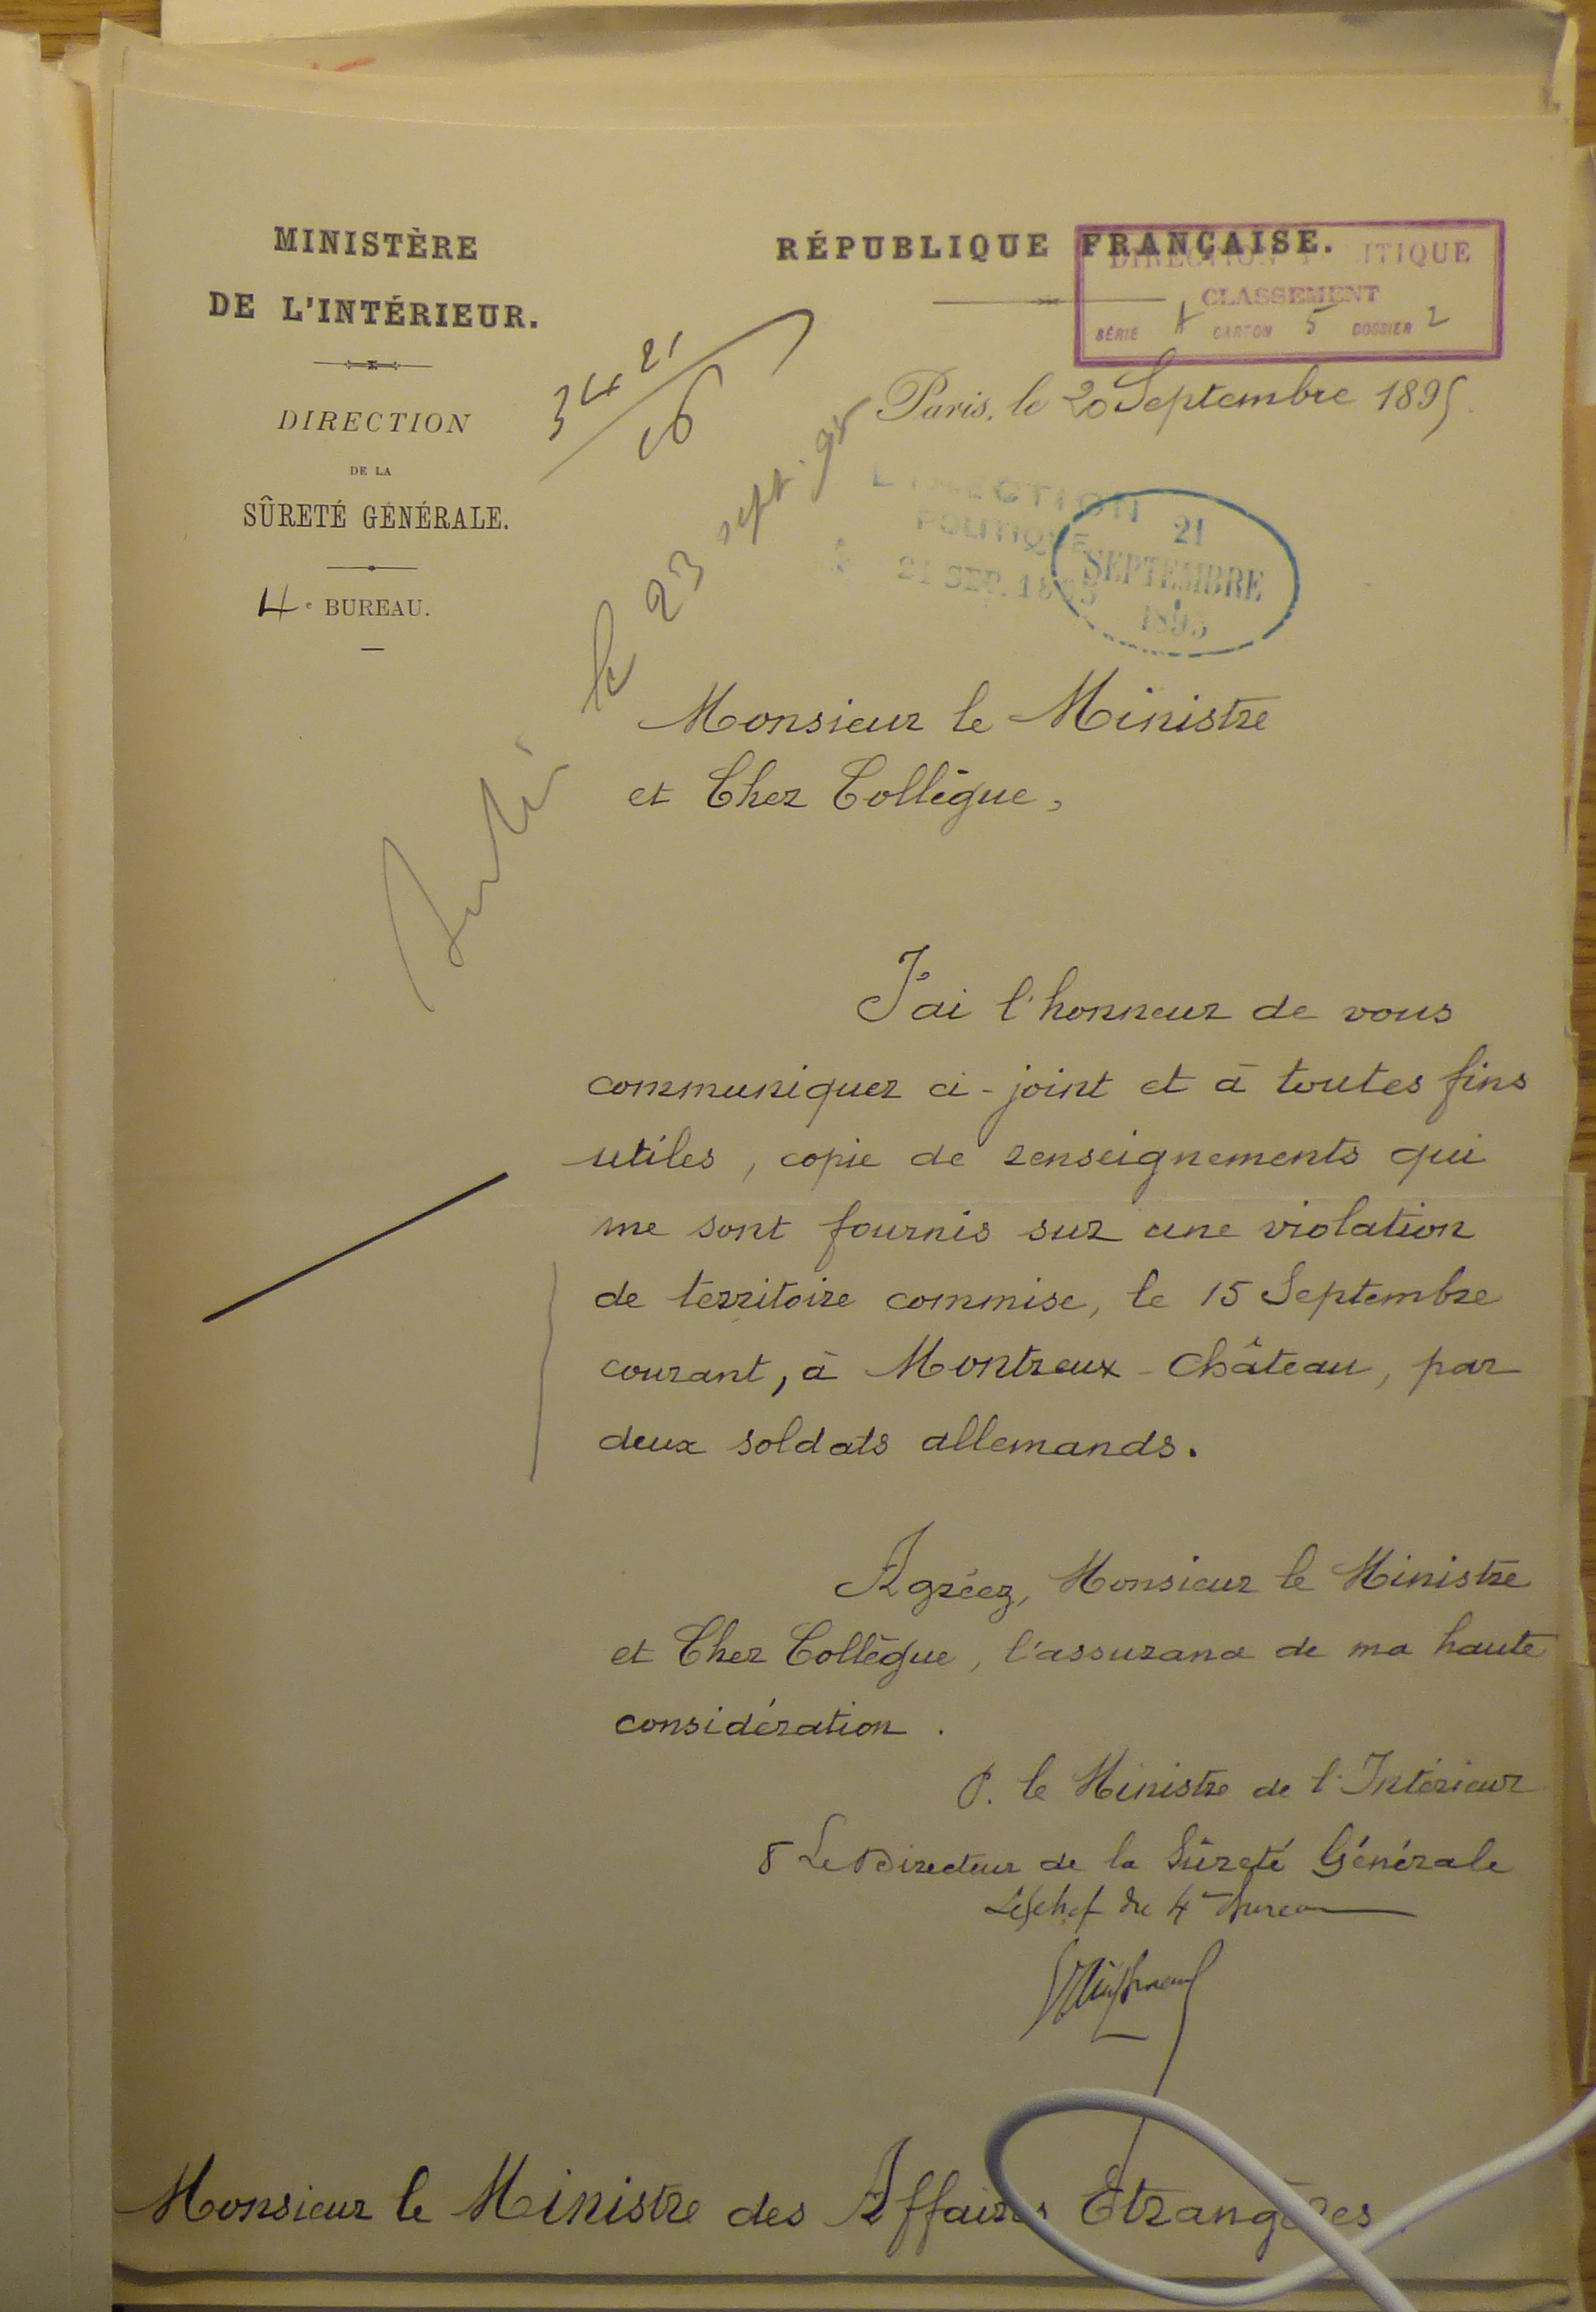 MINISTÈRE
DE L'INTÉRIEUR.
DIRECTION
DE LA
SÛRETÉ GÉNÉRALE.
4e BUREAU.
RÉPUBLIQUE FRANÇAISE.
DIRECTION POLITIQUE
CLASSEMENT
SÉRIE A CARTON 5 DOSSIER 2
Paris, le 20 Septembre 1895.
le 23 sept. 95
DIRECTION
POLITIQUE
21 SEP. 1895
21
SEPTEMBRE
1895
Monsieur le Ministre
et Cher Collègue,
J'ai l'honneur de vous
communiquer ci-joint et à toutes fins
utiles, copie de renseignements qui
me sont fournis sur une violation
de territoire commise, le 15 Septembre
courant, à Montreux-Château, par
deux soldats allemands.
Agréez, Monsieur le Ministre
et Cher Collègue, l'assurance de ma haute
considération.
P. le Ministre de l'Intérieur
Le Directeur de la Sûreté Générale
Le chef du 4e bureau
Monsieur le Ministre des Affaires Etrangères